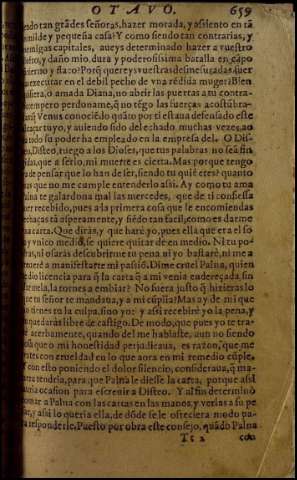 OTAVO. 659
do tan grãdes señoras, hazer morada, y assiento en tã
milde y pequeña casa? Y como siendo tan contrarias, y
emigas capitales, aueys determinado hazer a vuestro
to, y daño mio, dura y poderosissima batalla en cãpo
tierno y flaco? Porq̃ quereys vuestras desmesuradas
executar en el debil pecho de vna rẽdida muger? Bien
isiera, o amada Diana, no abrir las puertas a tu contra
tempero perdoname, q̃ no tẽgo las fuerças
Venus conociẽdo quãto por ti estaua defensado este
tuyo, y auiendo sido delechado muchas vezes, no
do su poder ha empleado en la empresa del. O Dis
o, Disteo, ruego a los Dioses, que tus palabras no seã fin
das, que a serlo, mi muerte es cierta. Mas porque tengo
de pensar que lo han de ser, siendo tu quiẽ eres? quanto
que no me cumple entenderlo assi. Ay como tu ama
te galardona mal las mercedes, que de ti confiessa
uer recebido, pues a la primera cosa que le encomiendas
echaças tã asperamente, y siẽdo tan facil, como es darme
carta. Que dirás, y que haré yo, pues ella que era el so
vnico medio, se quiere quitar de en medio. Ni tu po
rás, ni osarás descubrirme tu pena ni yo bastaré, ni me a
treueré a manifestarte mi passiõ. Dime cruel Palna, quien
dio licencia para q̃ la carta q̃ a mi venia endereçada, sin
la, la tornes a embiar? No fuera justo q̃ hizieras lo
tu señor te mandaua, y a mi cũplia? Mas ay de mi que
no tienes tu la culpa, sino yo: y assi recebiré yo la pena, y
quedarás libre de castigo. De modo, que pues yo te tra
té acerbamente, quando del me hablaste, aun no siendo
que o mi honestidad perjudicaua, es razon, que me
tes con crueldad en lo que aora en mi remedio cũple.
con esto poniendo el dolor silencio, consideraua, q̃ ma
nera tendria, para que Palna le diesse la carta, porque assi
uria ocasion para escreuir a Disteo. Y al fin determinò
tomar a Palna con las cartas en las manos, y verlas a su pe
sar, y assi lo queria ella, de dõde se le ofreciera modo pa
ra responderle. Puesto por obra este consejo, quãdo Palna
Tt 2